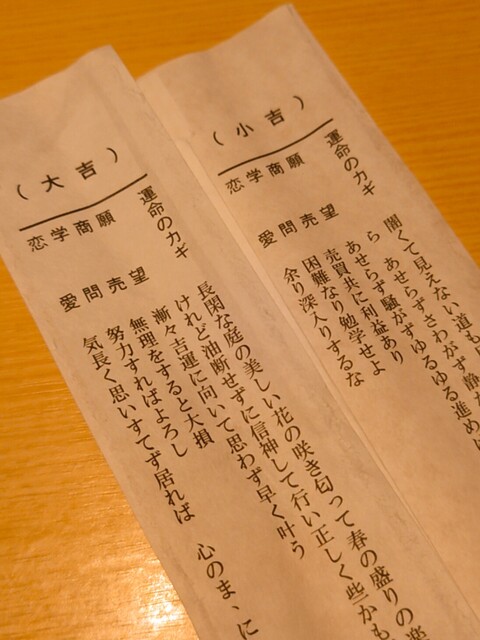 （小吉）
運命のカギ
闇くて見えない道も
ら　あせらずさわがず　静
願望　あせらず騒がずゆるゆる進め
商売　売買共に利益あり
学問　困難なり勉学せよ
恋愛　余り深入りするな
（大吉）
運命のカギ
長閑な庭の美しい花の咲き匂って春の盛りの楽
けれど油断せずに信神して行い正しく些かも
願望　漸々吉運に向いて思わず早く叶う
商売　無理をすると大損
学問　努力すればよろし
恋愛　気長く思いすてず居れば　心のまゝに